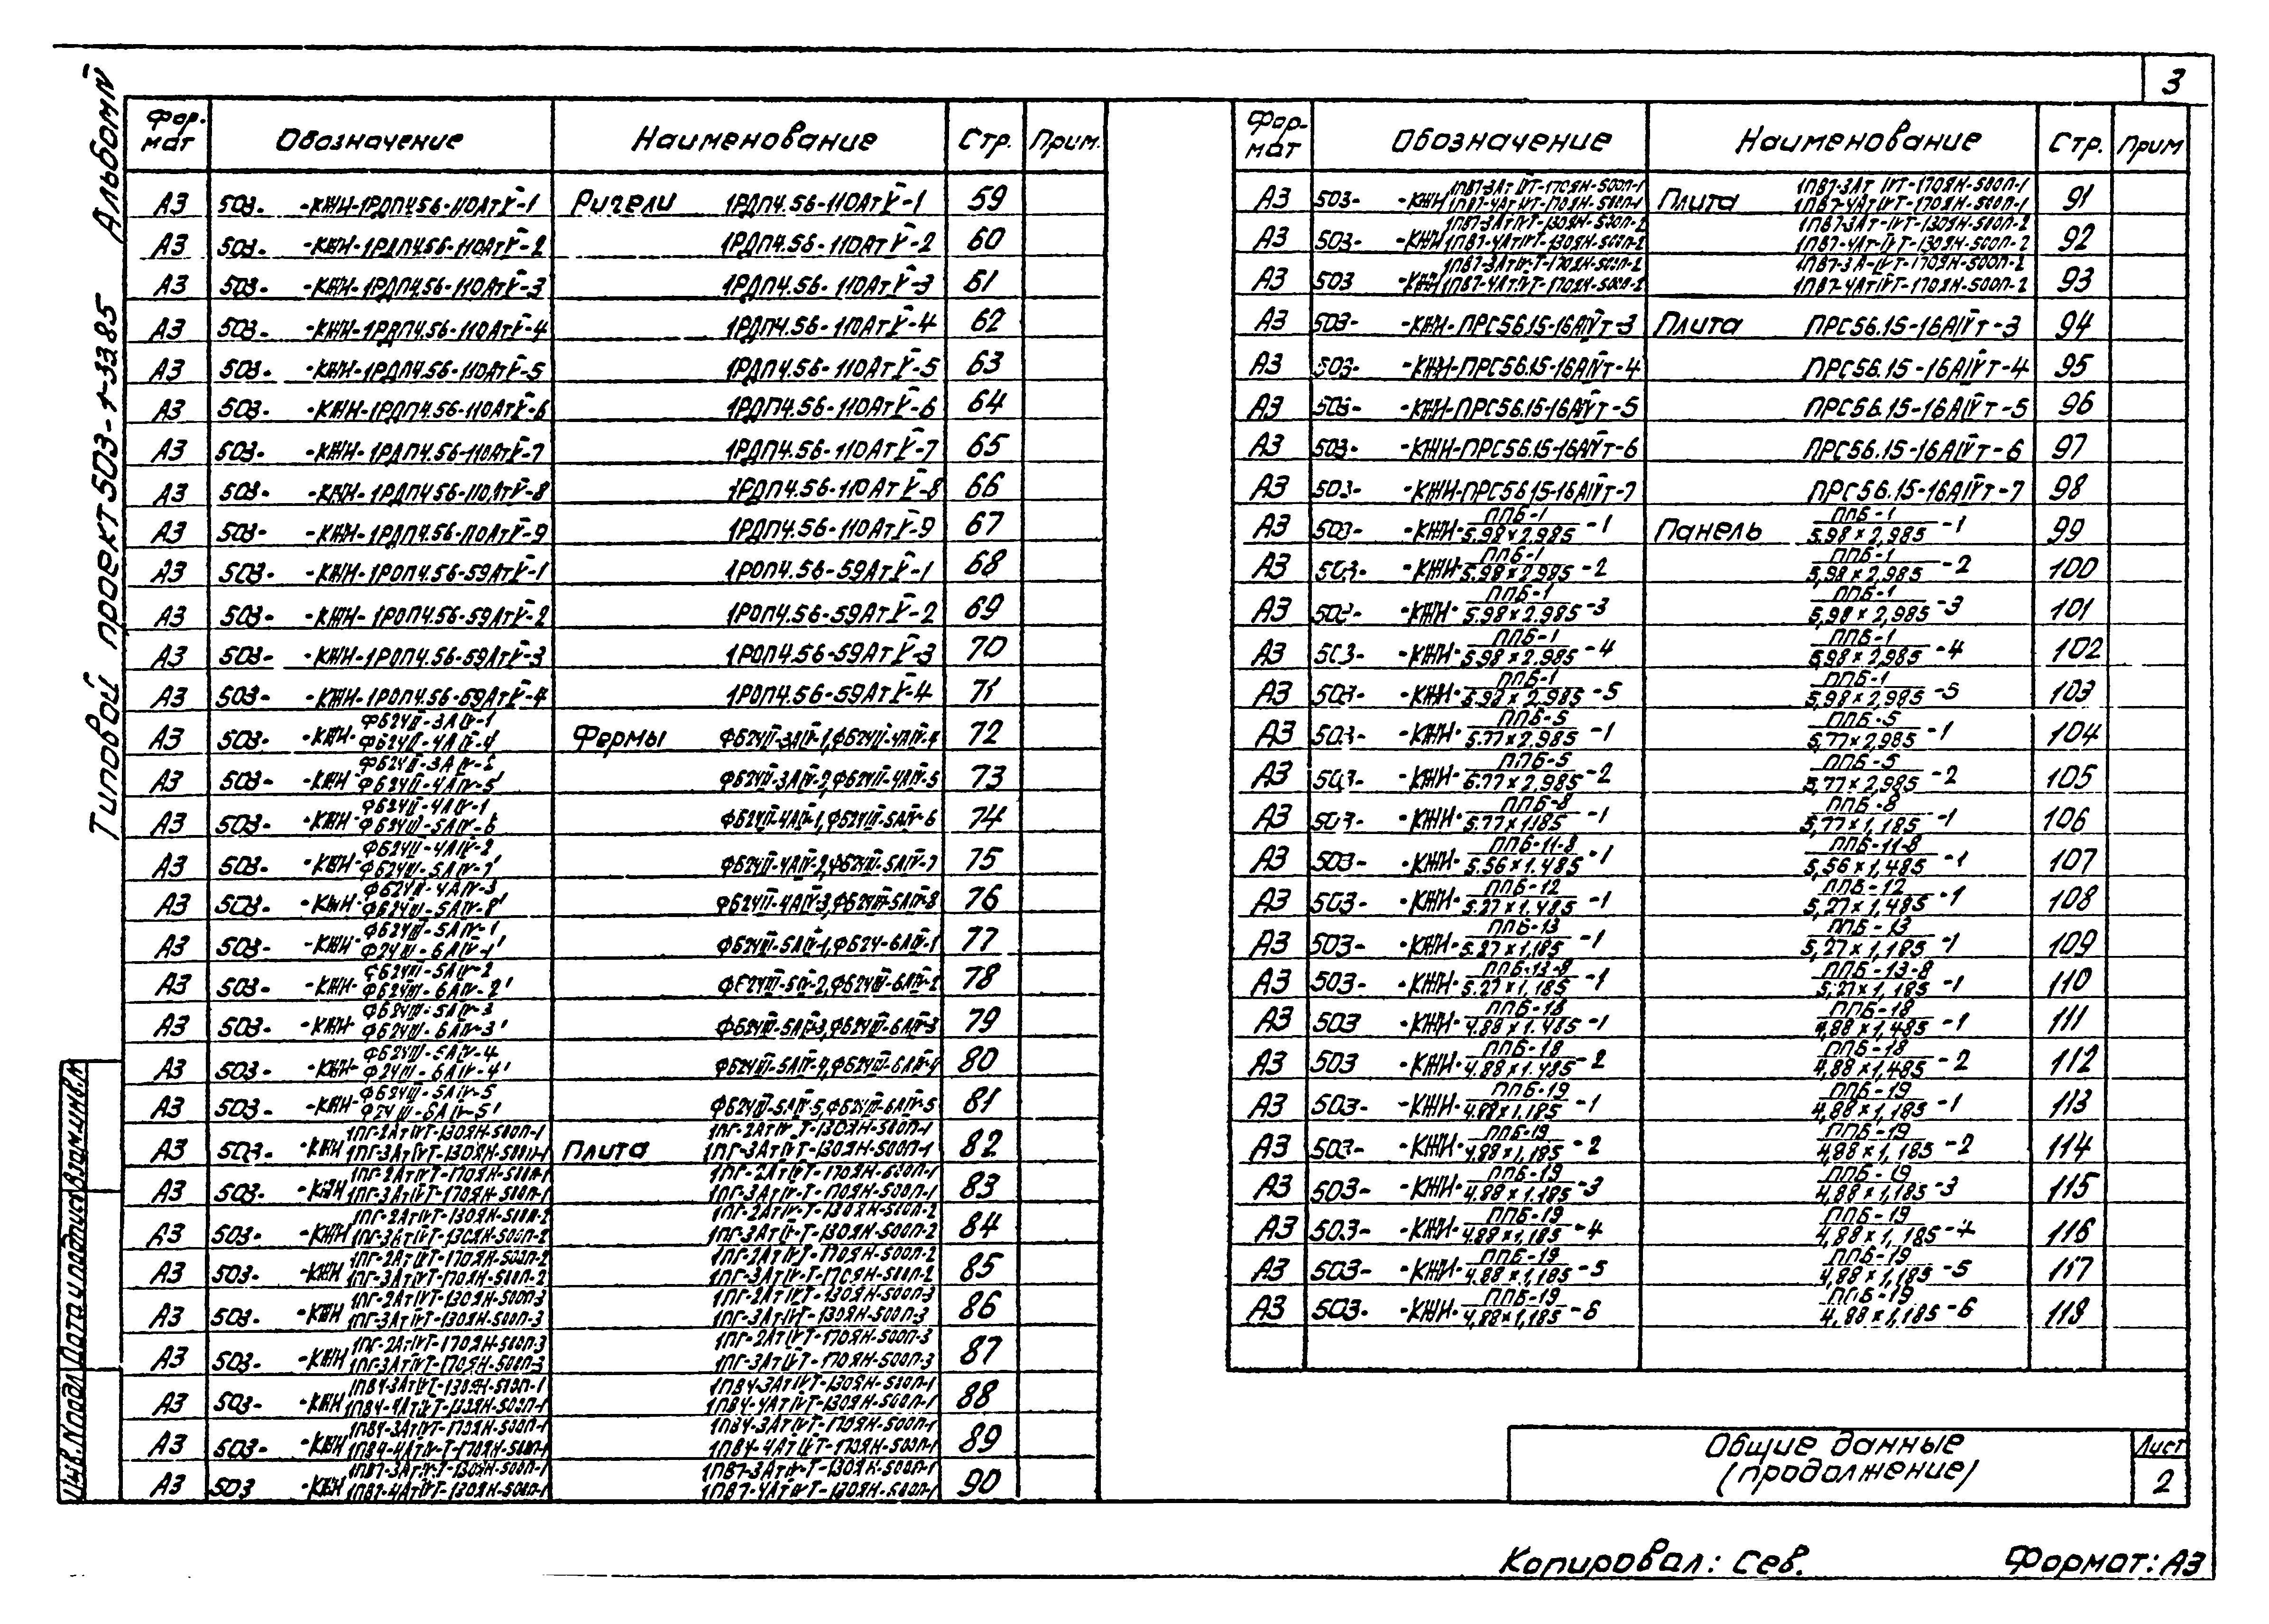 3
Типовой проект 503-1-32.85 Альбом
Формат Обозначение Наименование Стр. Прим.
А3 503- -КЖИ-1РДП4.56-110АтV-1 Ригели 1РДП4.56-110АтV-1 59
А3 503- -КЖИ-1РДП4.56-110АтV-2 1РДП4.56-110АтV-2 60
А3 503- -КЖИ-1РДП4.56-110АтV-3 1РДП4.56-110АтV-3 61
А3 503- -КЖИ-1РДП4.56-110АтV-4 1РДП4.56-110АтV-4 62
А3 503- -КЖИ-1РДП4.56-110АтV-5 1РДП4.56-110АтV-5 63
А3 503- -КЖИ-1РДП4.56-110АтV-6 1РДП4.56-110АтV-6 64
А3 503- -КЖИ-1РДП4.56-110АтV-7 1РДП4.56-110АтV-7 65
А3 503- -КЖИ-1РДП4.56-110АтV-8 1РДП4.56-110АтV-8 66
А3 503- -КЖИ-1РДП4.56-110АтV-9 1РДП4.56-110АтV-9 67
А3 503- -КЖИ-1РОП4.56-59АтV-1 1РОП4.56-59АтV-1 68
А3 503- -КЖИ-1РОП4.56-59АтV-2 1РОП4.56-59АтV-2 69
А3 503- -КЖИ-1РОП4.56-59АтV-3 1РОП4.56-59АтV-3 70
А3 503- -КЖИ-1РОП4.56-59АтV-4 1РОП4.56-59АтV-4 71
А3 503- -КЖИ- ФБ24II-3АIV-1
ФБ24II-4АIV-4 Фермы ФБ24II-3АIV-1, ФБ24II-4АIV-4 72
А3 503- -КЖИ- ФБ24II-3АIV-2
ФБ24II-4АIV-5 ФБ24II-3АIV-2, ФБ24II-4АIV-5 73
А3 503- -КЖИ- ФБ24II-4АIV-1
ФБ24III-5АIV-6 ФБ24II-4АIV-1, ФБ24III-5АIV-6 74
А3 503- -КЖИ- ФБ24II-4АIV-2
ФБ24III-5АIV-7 ФБ24II-4АIV-2, ФБ24III-5АIV-7 75
А3 503- -КЖИ- ФБ24II-4АIV-3
ФБ24III-5АIV-8 ФБ24II-4АIV-3, ФБ24III-5АIV-8 76
А3 503- -КЖИ- ФБ24III-5АIV-1
Ф24III-6АIV-1 ФБ24III-5АIV-1, ФБ24-6АIV-1 77
А3 503- -КЖИ- ФБ24III-5АIV-2
ФБ24III-6АIV-2 ФБ24III-5IV-2, ФБ24III-6АIV-2 78
А3 503- -КЖИ- ФБ24III-5АIV-3
ФБ24III-6АIV-3 ФБ24III-5АIV-3, ФБ24III-6АIV-3 79
А3 503- -КЖИ- ФБ24III-5АIV-4
Ф24III-6АIV-4 ФБ24III-5АIV-4, ФБ24III-6АIV-4 80
А3 503- -КЖИ- ФБ24III-5АIV-5
Ф24III-6АIV-5 ФБ24III-5АIV-5, ФБ24III-6АIV-5 81
А3 503- -КЖИ 1ПГ-2АтIVТ-130ЯН-500П-1
1ПГ-3АтIVТ-130ЯН-500П-1 Плита 1ПГ-2АтIVТ-130ЯН-500П-1
1ПГ-3АтIVТ-130ЯН-500П-1 82
А3 503- -КЖИ 1ПГ-2АтIVТ-170ЯН-500П-1
1ПГ-3АтIVТ-170ЯН-500П-1 1ПГ-2АтIVТ-170ЯН-500П-1
1ПГ-3АтIVТ-170ЯН-500П-1 83
А3 503- -КЖИ 1ПГ-2АтIVТ-130ЯН-500П-2
1ПГ-3АтIVТ-130ЯН-500П-2 1ПГ-2АтIVТ-130ЯН-500П-2
1ПГ-3АтIVТ-130ЯН-500П-2 84
А3 503- -КЖИ 1ПГ-2АтIVТ-170ЯН-500П-2
1ПГ-3АтIVТ-170ЯН-500П-2 1ПГ-2АтIVТ-170ЯН-500П-2
1ПГ-3АтIVТ-170ЯН-500П-2 85
А3 503- -КЖИ 1ПГ-2АтIVТ-130ЯН-500П-3
1ПГ-3АтIVТ-130ЯН-500П-3 1ПГ-2АтIVТ-130ЯН-500П-3
1ПГ-3АтIVТ-130ЯН-500П-3 86
А3 503- -КЖИ 1ПГ-2АтIVТ-170ЯН-500П-3
1ПГ-3АтIVТ-170ЯН-500П-3 1ПГ-2АтIVТ-170ЯН-500П-3
1ПГ-3АтIVТ-170ЯН-500П-3 87
А3 503- -КЖИ 1ПВ4-3АтIVТ-130ЯН-500П-1
1ПВ4-4АтIVТ-130ЯН-500П-1 1ПВ4-3АтIVТ-130ЯН-500П-1
1ПВ4-4АтIVТ-130ЯН-500П-1 88
А3 503- -КЖИ 1ПВ4-3АтIVТ-170ЯН-500П-1
1ПВ4-4АтIV-Т-170ЯН-500П-1 1ПВ4-3АтIVТ-170ЯН-500П-1
1ПВ4-4АтIVТ-170ЯН-500П-1 89
А3 503 -КЖИ 1ПВ7-3АтIVТ-130ЯН-500П-1
1ПВ7-4АтIVТ-130ЯН-500П-1 1ПВ7-3АтIVТ-130ЯН-500П-1
1ПВ7-4АтIVТ-130ЯН-500П-1 90
Формат Обозначение Наименование Стр. Прим
А3 503- -КЖИ 1ПВ7-3АтIVТ-170ЯН-500П-1
1ПВ7-4АтIVТ-170ЯН-500П-1 Плита 1ПВ7-3АтIVТ-170ЯН-500П-1
1ПВ7-4АтIVТ-170ЯН-500П-1 91
А3 503- -КЖИ 1ПВ7-3АтIVТ-130ЯН-500П-2
1ПВ7-4АтIVТ-130ЯН-500П-2 1ПВ7-3Ат-IVТ-130ЯН-500П-2
1ПВ7-4Ат-IVТ-130ЯН-500П-2 92
А3 503 -КЖИ 1ПВ7-3АтIV-Т-170ЯН-500П-2
1ПВ7-4АтIVТ-170ЯН-500П-2 1ПВ7-3А-IVТ-170ЯН-500П-2
1ПВ7-4АтIVТ-170ЯН-500П-2 93
А3 503- -КЖИ-ПРС56.15-16АIVт-3 Плита ПРС56.15-16АIVт-3 94
А3 503- -КЖИ-ПРС56.15-16АIVт-4 ПРС56.15-16АIVт-4 95
А3 503- -КЖИ-ПРС56.15-16АIVт-5 ПРС56.15-16АIVт-5 96
А3 503- -КЖИ-ПРС56.15-16АIVт-6 ПРС56.15-16АIVт-6 97
А3 503- -КЖИ-ПРС56.15-16АIVт-7 ПРС56.15-16АIVт-7 98
А3 503- -КЖИ- ППБ-1
5.98×2.985 -1 Панель ППБ-1
5.98×2,985 -1 99
А3 503- -КЖИ- ППБ-1
5.98×2.985 -2 ППБ-1
5,98×2,985 -2 100
А3 503- -КЖИ ППБ-1
5.98×2.985 -3 ППБ-1
5,98×2,985 -3 101
А3 503- -КЖИ- ППБ-1
5.98×2.985 -4 ППБ-1
5,98×2,985 -4 102
А3 503- -КЖИ- ППБ-1
5.98×2.985 -5 ППБ-1
5,98×2,985 -5 103
А3 503- -КЖИ- ППБ-5
5.77×2.985 -1 ППБ-5
5,77×2,985 -1 104
А3 503- -КЖИ- ППБ-5
5.77×2.985 -2 ППБ-5
5,77×2,985 -2 105
А3 503- -КЖИ- ППБ-8
5.77×1.185 -1 ППБ-8
5,77×1,185 -1 106
А3 503- -КЖИ- ППБ-11-8
5.56×1.485 -1 ППБ-11-8
5,56×1,485 -1 107
А3 503- -КЖИ- ППБ-12
5.27×1.485 -1 ППБ-12
5,27×1,485 -1 108
А3 503- -КЖИ- ППБ-13
5.27×1,185 -1 ППБ-13
5,27×1,185 -1 109
А3 503- -КЖИ- ППБ-13-8
5.27×1,185 -1 ППБ-13-8
5,27×1,185 -1 110
А3 503 -КЖИ- ППБ-18
4.88×1.485 -1 ППБ-18
4,88×1,485 -1 111
А3 503 -КЖИ- ППБ-18
4.88×1.485 -2 ППБ-18
4,88×1,485 -2 112
А3 503- -КЖИ- ППБ-19
4.88×1.185 -1 ППБ-19
4,88×1,185 -1 113
А3 503- -КЖИ- ППБ-19
4.88×1,185 -2 ППБ-19
4,88×1,185 -2 114
А3 503- -КЖИ- ППБ-19
4.88×1.185 -3 ППБ-19
4,88×1,185 -3 115
А3 503- -КЖИ- ППБ-19
4.88×1,185 -4 ППБ-19
4,88×1,185 -4 116
А3 503- -КЖИ- ППБ-19
4.88×1,185 -5 ППБ-19
4,88×1,185 -5 117
А3 503- -КЖИ- ППБ-19
4,88×1,185 -6 ППБ-19
4,88×1,185 -6 118
Инв.N подл. Дата и подпись Взам.инв.N
Общие данные
(продолжение)
Лист
2
Копировал: Сев. Формат: А3